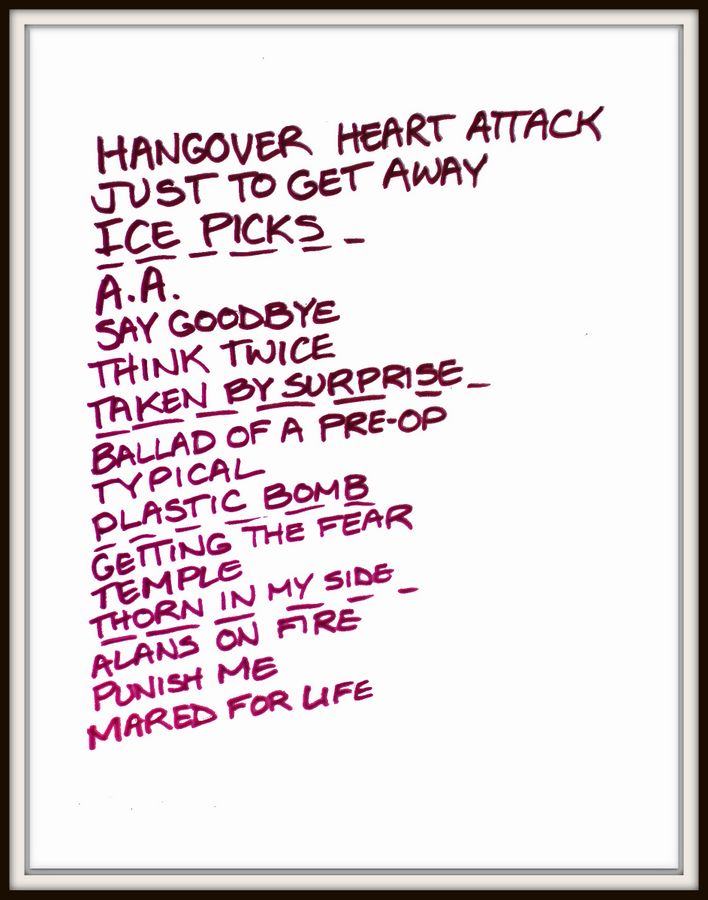 HANGOVER HEART ATTACK
JUST TO GET AWAY
ICE PICKS
A.A.
SAY GOODBYE
THINK TWICE
TAKEN BY SURPRISE
BALLAD OF A PRE-OP
TYPICAL
PLASTIC BOMB
GETTING THE FEAR
TEMPLE
THORN IN MY SIDE
ALANS ON FIRE
PUNISH ME
MARED FOR LIFE